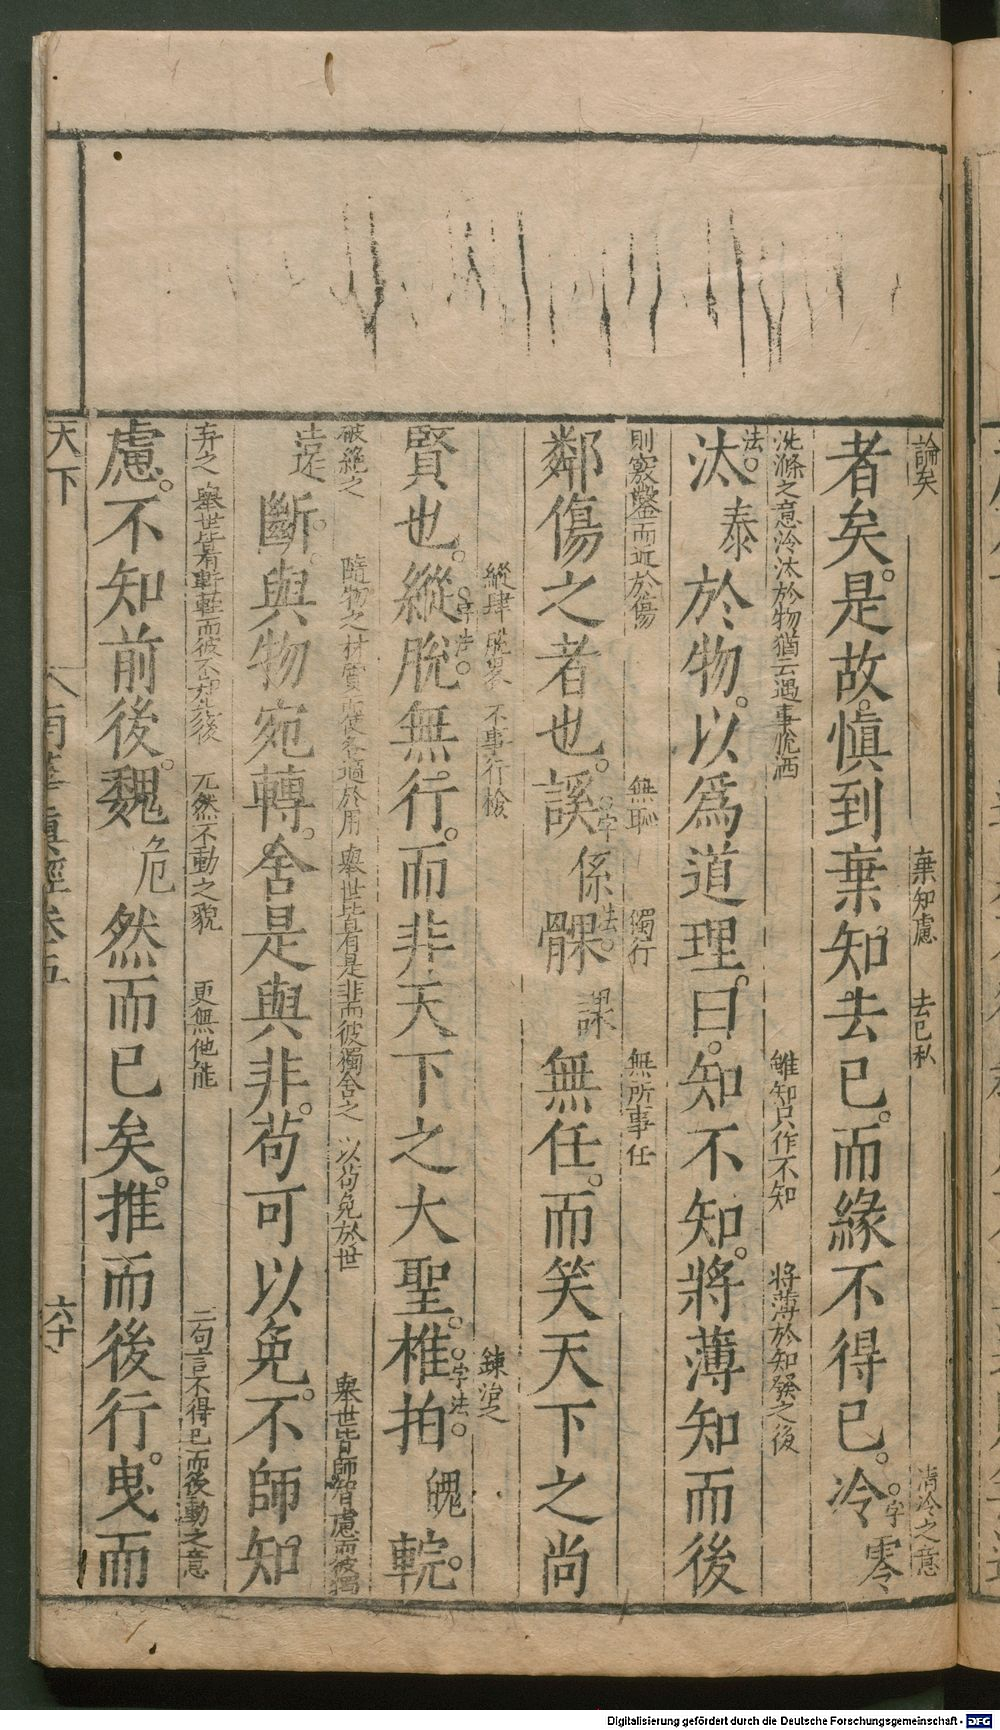 論矣 棄知慮 去已私 清泠之意
者矣。是故愼到棄知去已。而緣不得已。泠 字 零
洗滌之意泠汰於物猶云遇事脫洒 雖知只作不知 將薄於知發之後
汰。法。泰於物。以爲道理。曰。知不知。將薄知而後
則竅鑿而近於傷 無恥 獨行 無所事任
鄰傷之者也。謑 字 係 法。髁 課 無任。而笑天下之尚
縱肆脫畧 不事行檢 鍊治之
賢也。縱 字法。脫無行。而非天下之大聖。椎 字法。拍 魄 輐。
破絶之 隨物之材質而使各適於用 舉世皆有是非而彼獨舍之 以苟免於世 舉世皆師智慮而彼獨
斷。與物宛轉。舍是與非。苟可以免。不師知
弃之 舉世皆有 兀然不動之貌 更無他能 二句言不得已而後動之意
慮。不知前後。魏 危 然而已矣。推而後行。曳而
天下 南華真經卷五 六十
Digitalisierung gefördert durch die Deutsche Forschungsgemeinschaft - DFG